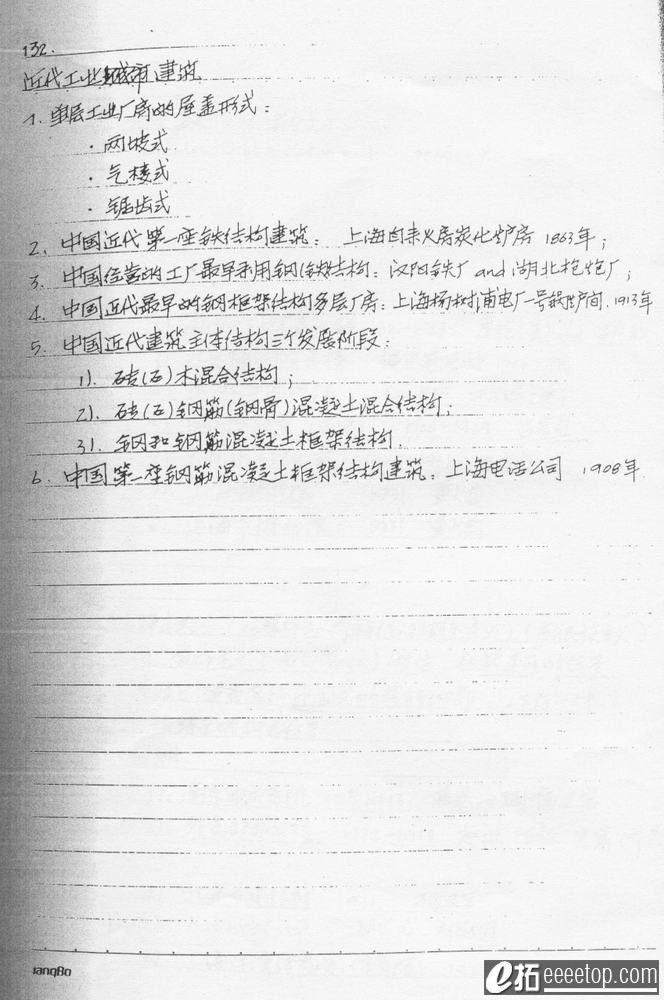 132.
近代工业城市建筑
1. 单层工业厂房的屋盖形式：
· 两坡式
· 气楼式
· 锯齿式
2. 中国近代第一座铁结构建筑：上海自来火房炭化炉房 1863年；
3. 中国经营的工厂最早利用钢(铁)结构：汉阳铁厂 and 湖北枪炮厂；
4. 中国近代最早的钢框架结构多层厂房：上海杨树浦电厂一号锅炉间. 1913年
5. 中国近代建筑主体结构三个发展阶段：
1). 砖(石)木混合结构；
2). 砖(石)钢筋(钢骨)混凝土混合结构；
3). 钢和钢筋混凝土框架结构.
6. 中国第一座钢筋混凝土框架结构建筑：上海电话公司 1908年.
IanqBo
e拓 eeeetop.com